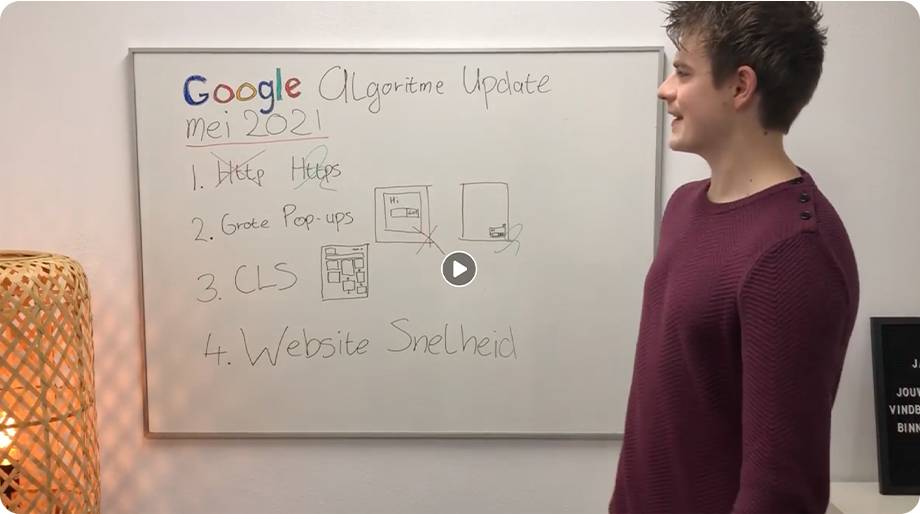 Google Algoritme Update
mei 2021
1. Http Https
2. Grote Pop-ups
Hi
3. CLS
4. Website Snelheid
JOUW
VINDB
BINN